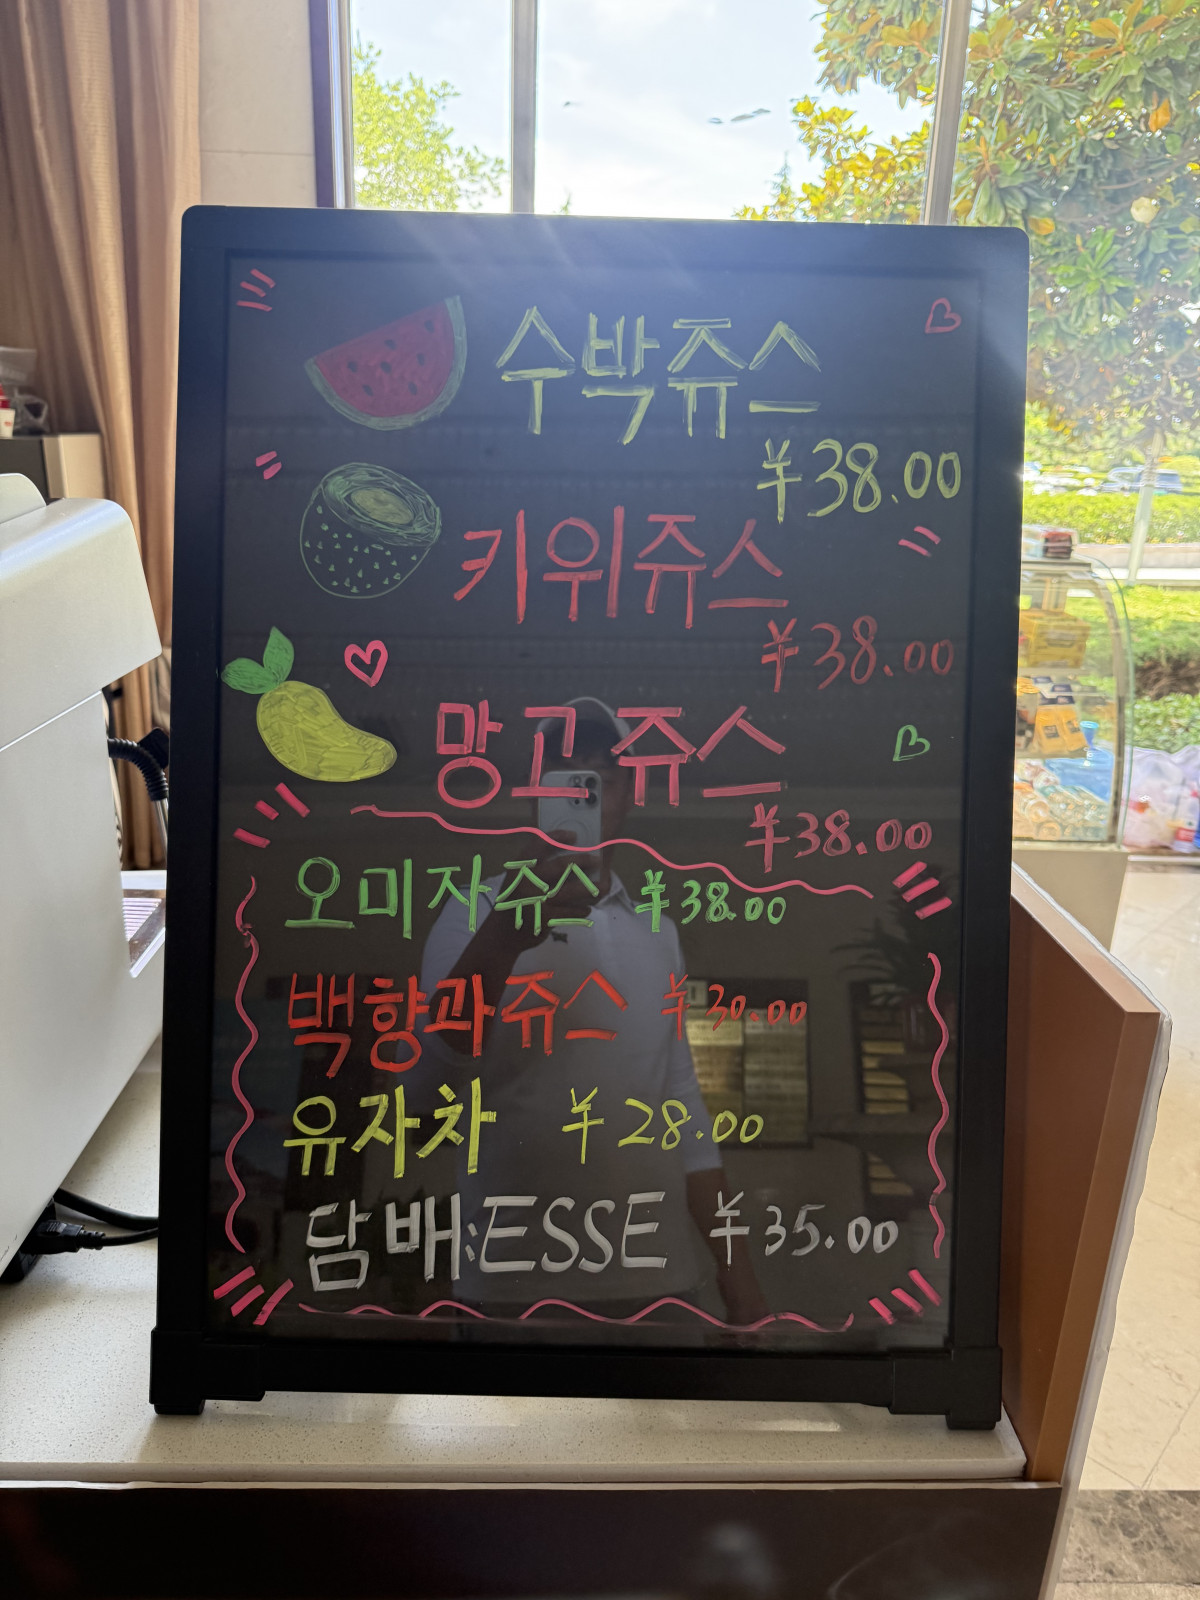 수박쥬스
¥38.00
키위쥬스
¥38.00
망고쥬스
¥38.00
오미자쥬스 ¥38.00
백향과쥬스 ¥30.00
유자차 ¥28.00
담배:ESSE ¥35.00